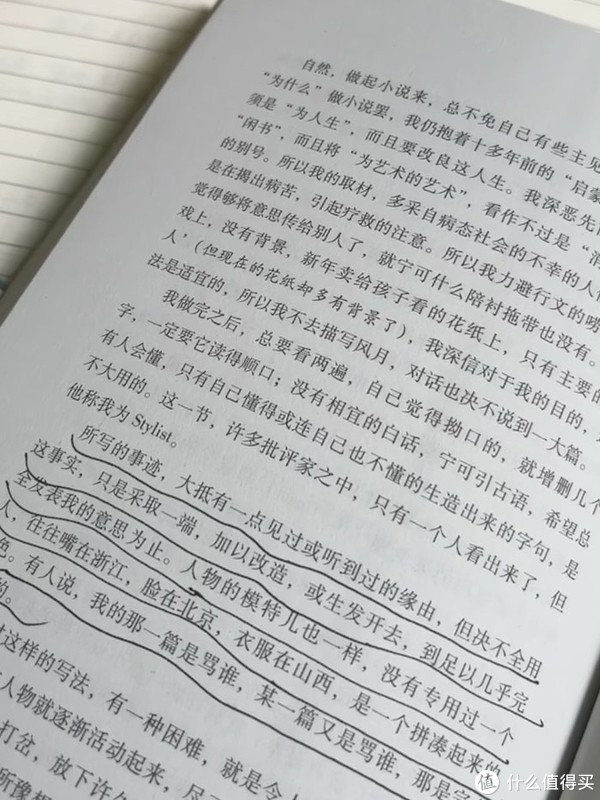 自然，做起小说来，总不免自己有些主见
“为什么”做小说罢，我仍抱着十多年前的“启蒙
须是“为人生”，而且要改良这人生。我深恶先
“闲书”，而且将“为艺术的艺术”，看作不过是“消
的别号。所以我的取材，多采自病态社会的不幸的人
是在揭出病苦，引起疗救的注意。所以我力避行文的唠
觉得够将意思传给别人了，就宁可什么陪衬拖带也没有。
戏上，没有背景，新年卖给孩子看的花纸上，只有主要的
人，（但现在的花纸却多有背景了），我深信对于我的目的，
法是适宜的，所以我不去描写风月，对话也决不说到一大篇。
我做完之后，总要看两遍，自己觉得拗口的，就增删几个
字，一定要它读得顺口；没有相宜的白话，宁可引古语，希望总
有人会懂，只有自己懂得或连自己也不懂的生造出来的字句，是
不大用的。这一节，许多批评家之中，只有一个人看出来了，但
他称我为 Stylist。
所写的事迹，大抵有一点见过或听到过的缘由，但决不全用
这事实，只是采取一端，加以改造，或生发开去，到足以几乎完
全发表我的意思为止。人物的模特儿也一样，没有专用过一个
人，往往嘴在浙江，脸在北京，衣服在山西，是一个拼凑起来的
色。有人说，我的那一篇是骂谁，某一篇又是骂谁，那是完
的。
这样的写法，有一种困难，就是令人
人物就逐渐活动起来，尽
打岔，放下许久
所像
值 什么值得买